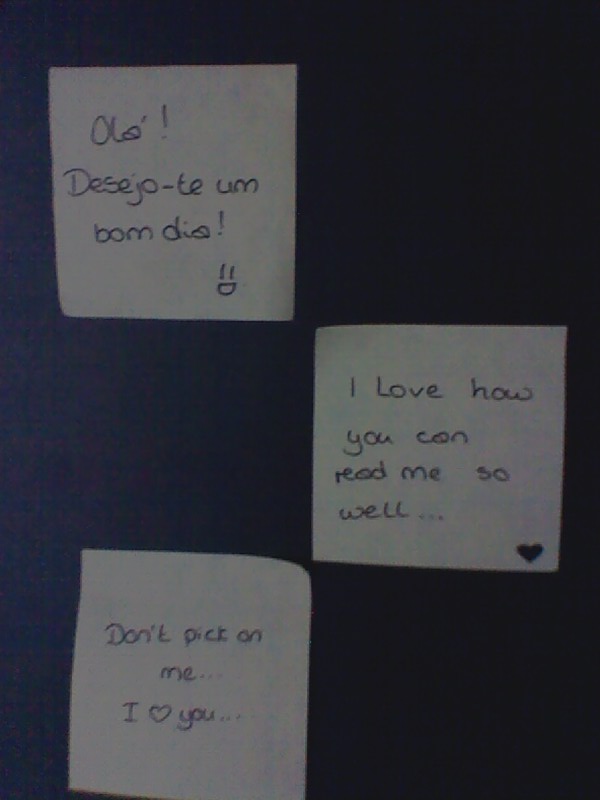 Olá!
Desejo-te um
bom dia!
I Love how
you can
read me so
well...
Don't pick on
me...
I ♡ you...